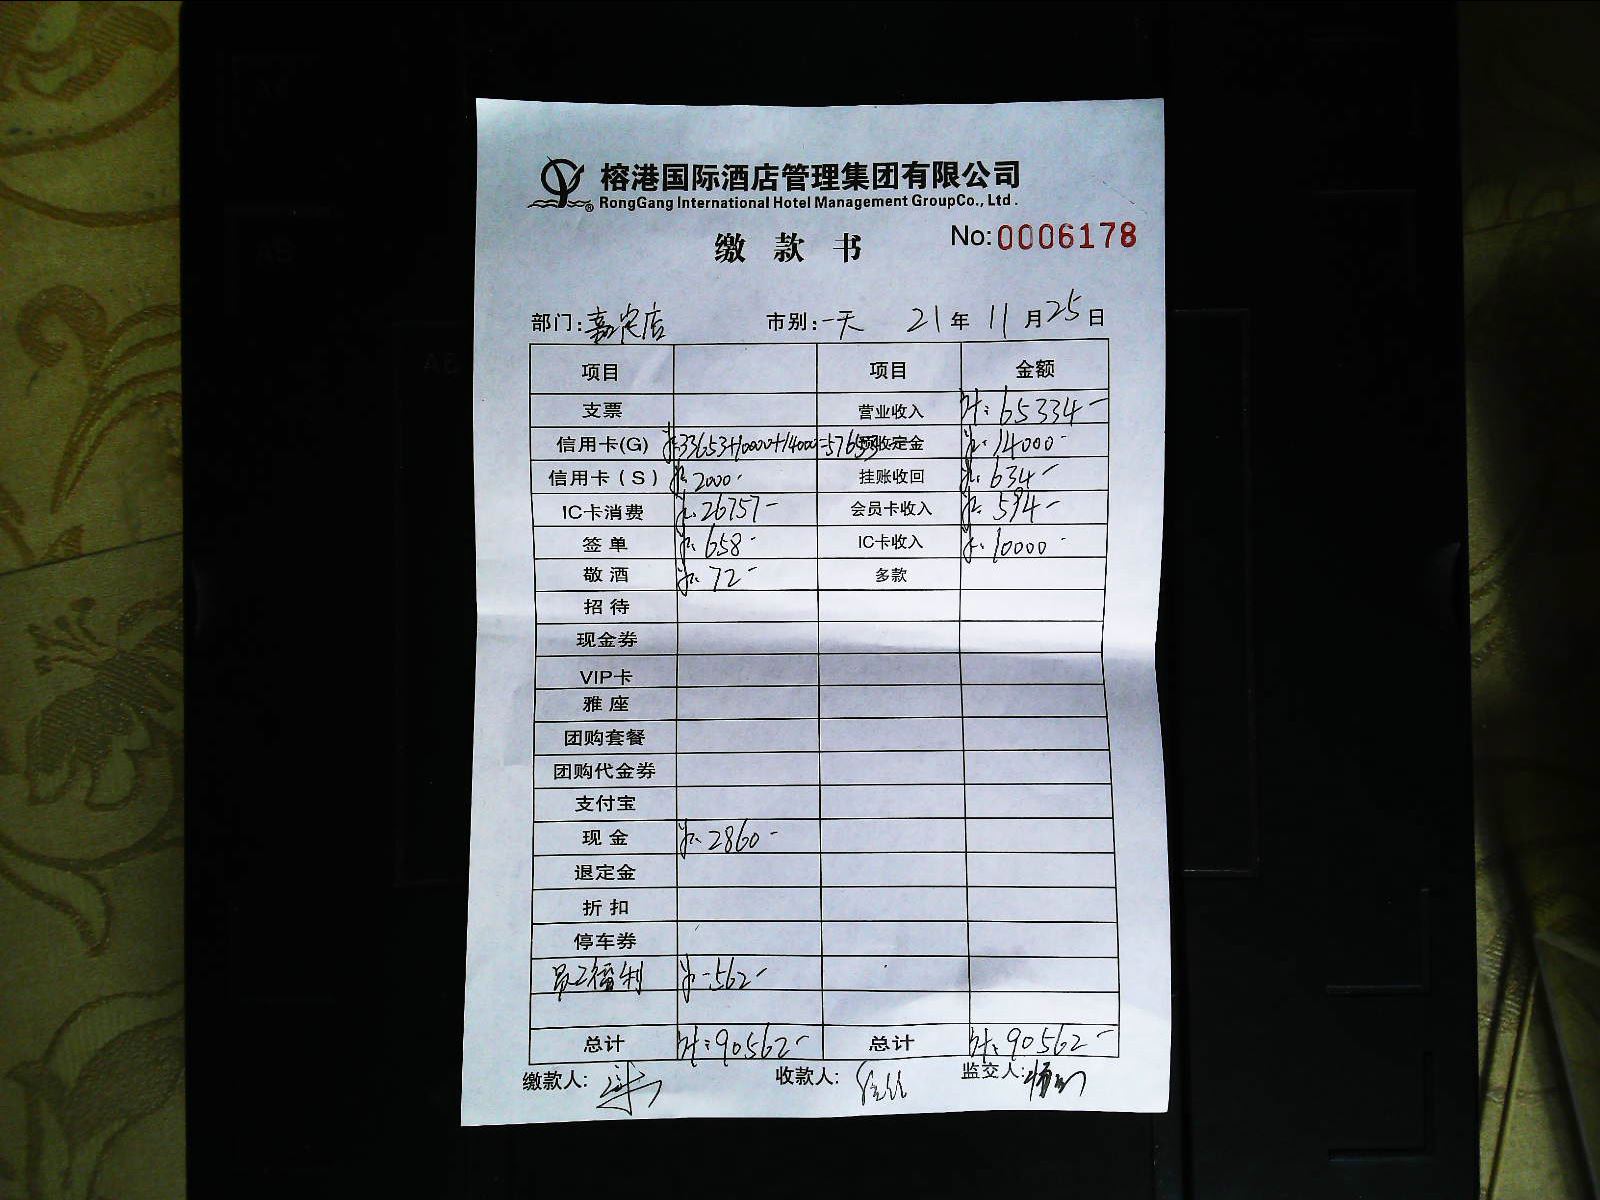 榕港国际酒店管理集团有限公司
RongGang International Hotel Management GroupCo., Ltd .
缴 款 书
No:0006178
部门:嘉定店 市别:一天 21年 11月25日
项目 项目 金额
支票 营业收入 计:65334-
信用卡(G) 33653+10000+14000=57653 预收定金 14000-
信用卡(S) 2000- 挂账收回 634-
IC卡消费 26757- 会员卡收入 594-
签单 658- IC卡收入 10000-
敬酒 72- 多款
招待
现金券
VIP卡
雅座
团购套餐
团购代金券
支付宝
现金 2860-
退定金
折扣
停车券
员工福利 562-
总计 计:90562- 总计 计:90562-
缴款人: 收款人: 监交人: